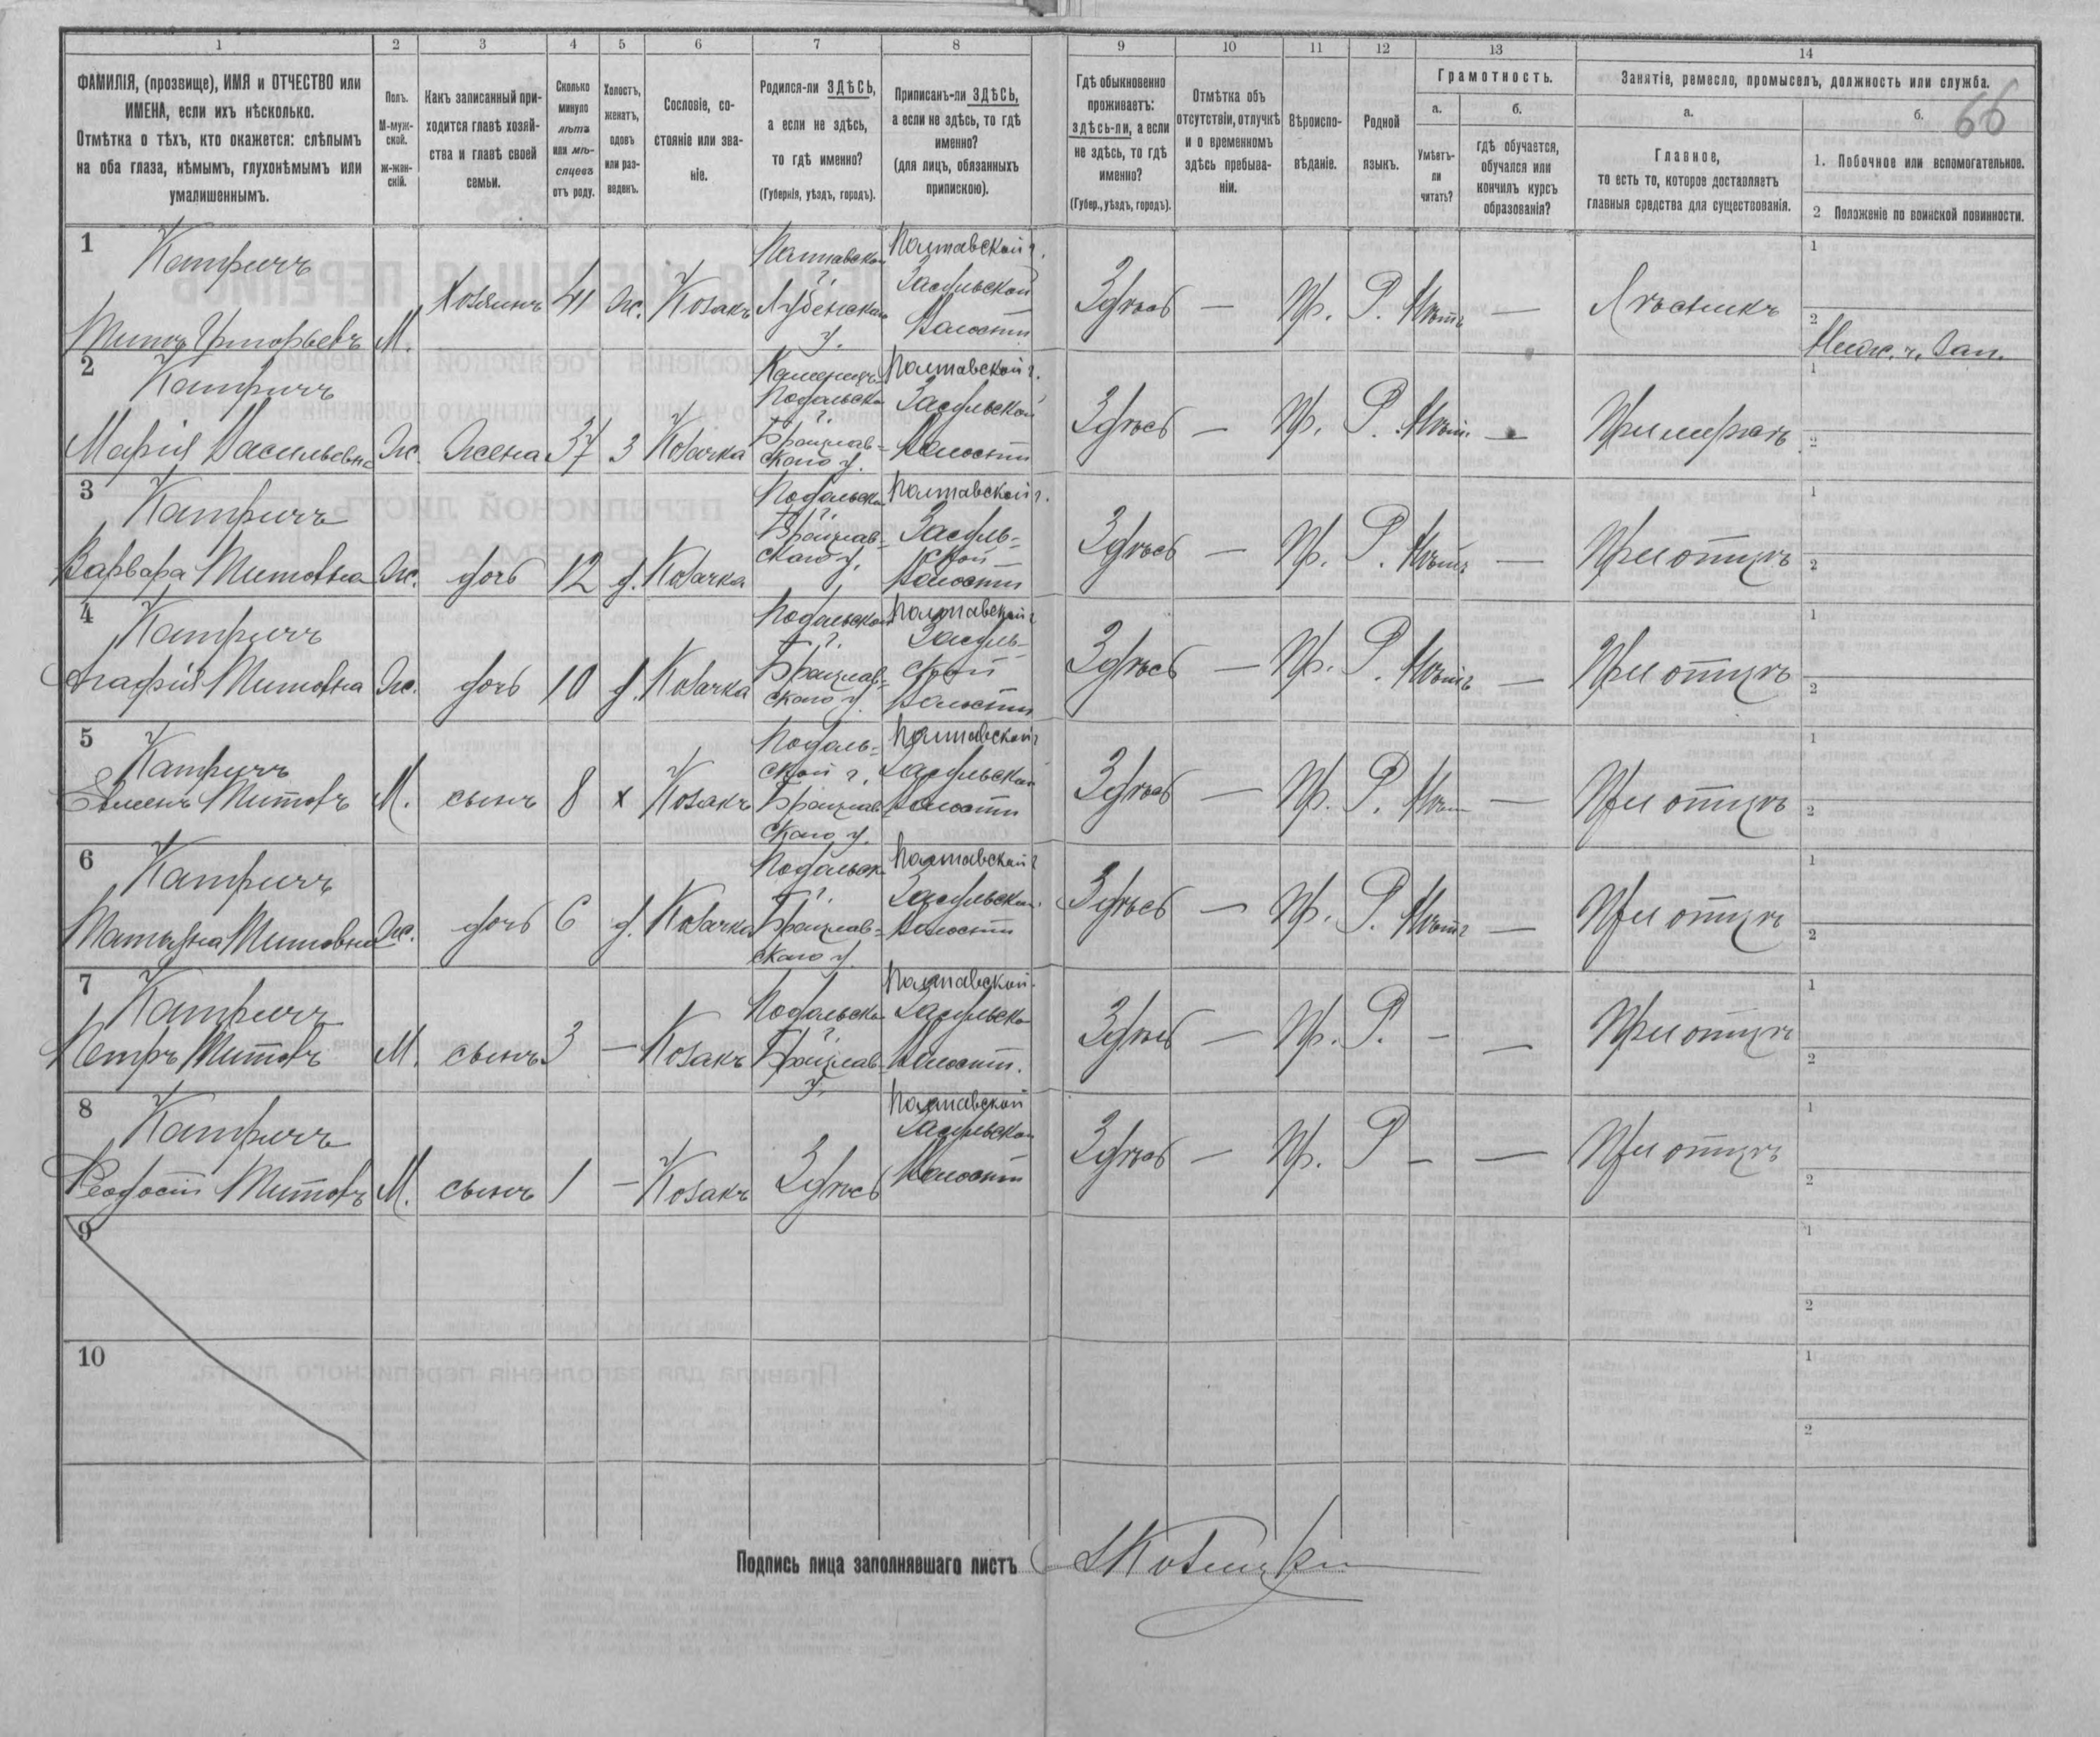 1 2 3 4 5 6 7 8 9 10 11 12 13 14
ФАМИЛІЯ, (прозвище), ИМЯ и ОТЧЕСТВО или ИМЕНА, если ихъ нѣсколько.
Отмѣтка о тѣхъ, кто окажется: слѣпымъ на оба глаза, нѣмымъ, глухонѣмымъ или умалишеннымъ.
Полъ. М-мужской. ж-женскій.
Какъ записанный приходится главѣ хозяйства и главѣ своей семьи.
Сколько минуло лѣтъ или мѣсяцевъ отъ роду.
Холостъ, женатъ, вдовъ или разведенъ.
Сословіе, состояніе или званіе.
Родился-ли ЗДѢСЬ, а если не здѣсь, то гдѣ именно?
(Губернія, уѣздъ, городъ).
Приписанъ-ли ЗДѢСЬ, а если не здѣсь, то гдѣ именно?
(для лицъ, обязанныхъ припискою).
Гдѣ обыкновенно проживаетъ: здѣсь-ли, а если не здѣсь, то гдѣ именно?
(Губер., уѣздъ, городъ).
Отмѣтка объ отсутствіи, отлучкѣ и о временномъ здѣсь пребываніи.
Вѣроисповѣданіе.
Родной языкъ.
Грамотность.
а. Умѣетъ-ли читать?
б. гдѣ обучается, обучался или кончилъ курсъ образованія?
Занятіе, ремесло, промыселъ, должность или служба.
а. Главное, то есть то, которое доставляетъ главныя средства для существованія.
б. 66
1. Побочное или вспомогательное.
2 Положеніе по воинской повинности.
1 Катричъ Титъ Григорьевъ М. Хозяинъ 41 ж. Козакъ Полтавской г. Лубенскаго у. Полтавской г. Засульской Волости Здѣсь — Пр. Р. Нѣтъ — Лѣсникъ 1 2
2 Катричъ Марія Васильевна Ж. Жена 37 з Козачка Подольской г. Брацлавскаго у. Полтавской г. Засульской Волости Здѣсь — Пр. Р. Нѣтъ — При мужѣ 1 2
3 Катричъ Варвара Титовна Ж. дочь 12 д. Козачка Подольской г. Брацлавскаго у. Полтавской г. Засульской Волости Здѣсь — Пр. Р. Нѣтъ — При отцѣ 1 2
4 Катричъ Агафія Титовна Ж. дочь 10 д. Козачка Подольской г. Брацлавскаго у. Полтавской г. Засульской Волости Здѣсь — Пр. Р. Нѣтъ — При отцѣ 1 2
5 Катричъ Титовъ М. сынъ 8 х Козакъ Подольской г. Брацлавскаго у. Полтавской г. Засульской Волости Здѣсь — Пр. Р. Нѣтъ — При отцѣ 1 2
6 Катричъ Татьяна Титовна Ж. дочь 6 д. Козачка Подольской г. Брацлавскаго у. Полтавской г. Засульской Волости Здѣсь — Пр. Р. Нѣтъ — При отцѣ 1 2
7 Катричъ Петръ Титовъ М. сынъ 3 — Козакъ Подольской г. Брацлав. у. Полтавской Засульской Волости. Здѣсь — Пр. Р. - — При отцѣ 1 2
8 Катричъ Феодосій Титовъ М. сынъ 1 — Козакъ Здѣсь Полтавской Засульской Волости Здѣсь — Пр. Р - — При отцѣ 1 2
9 1 2
10 1 2
Подпись лица заполнявшаго листъ